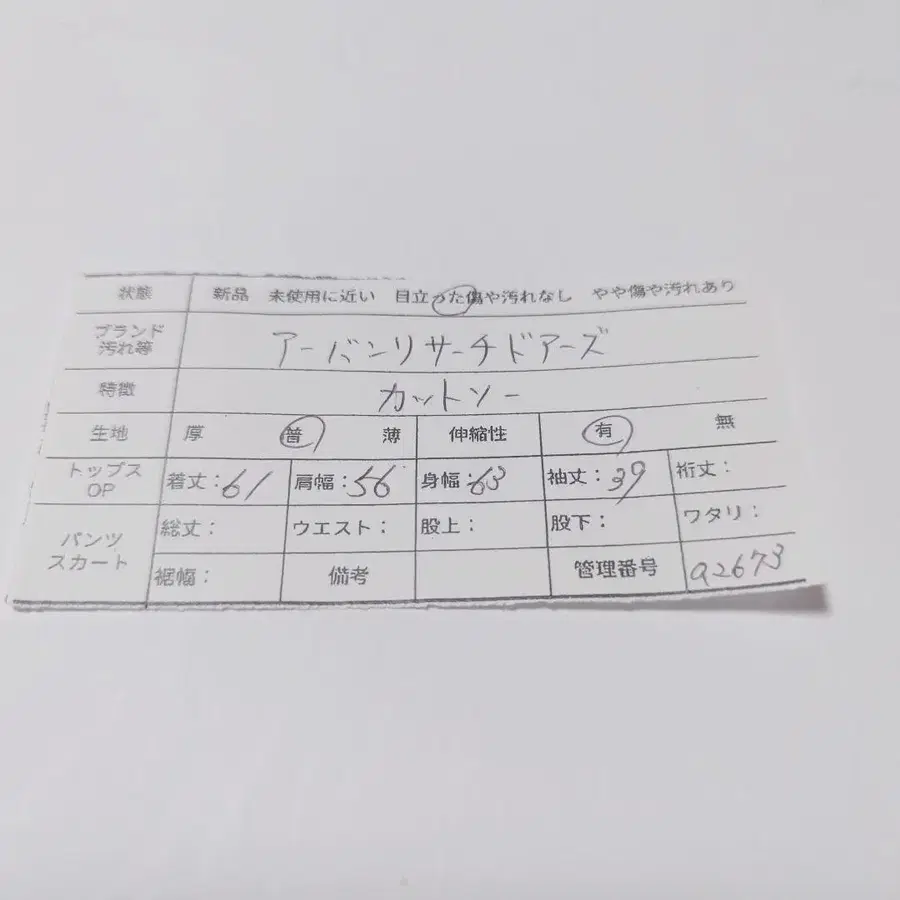 状態 新品 未使用に近い 目立った傷や汚れなし やや傷や汚れあり
ブランド
汚れ等 アーバンリサーチドアーズ
特徴 カットソー
生地 厚 普 薄 伸縮性 有 無
トップス
OP 着丈:61 肩幅:56 身幅:63 袖丈:39 裄丈:
パンツ
スカート 総丈: ウエスト: 股上: 股下: ワタリ:
裾幅: 備考 管理番号 a2673